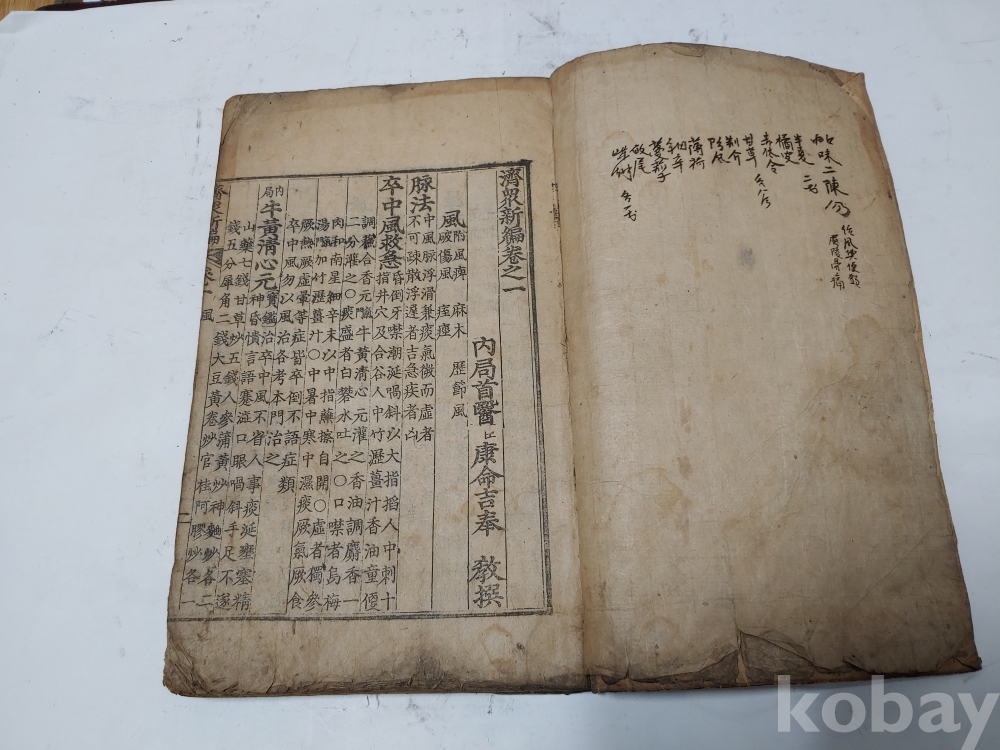 濟眾新編卷之一
內局首醫臣康命吉奉 教撰
風 附風痺 麻木 歷節風
破傷風 痓痙
脉法 中風脉浮滑兼痰氣微而虛者
不可疎散浮遲者吉急疾者凶
卒中風救急 昏倒牙噤潮涎喎斜以大指搯人中刺十
指井穴及合谷人中竹瀝薑汁香油童便
調蘇合香元牛黃清心元灌之香油調麝香一
二分灌之○痰盛者白礬水吐之○口噤者烏梅
肉和南星細辛末以中指蘸擦自開○虛者獨參
湯加竹瀝薑汁○中暑中寒中濕痰厥氣厥食
厥熱厥虛暈等症皆卒倒不語症類
卒中風勿以風治各考本門治之
內局牛黃清心元 寶鑑治卒中風不省人事痰涎壅塞精
神昏憒言語蹇澁口眼喎斜手足不遂
山藥七錢甘草炒五錢人參蒲黃炒神麯炒各二
錢五分犀角二錢大豆黃卷炒官桂阿膠炒各一
濟眾新編 卷一 風
味二陳
半夏 二
橘皮
赤茯令
甘草
荊介
防風
薄荷
細辛
蔓荊子
kobay